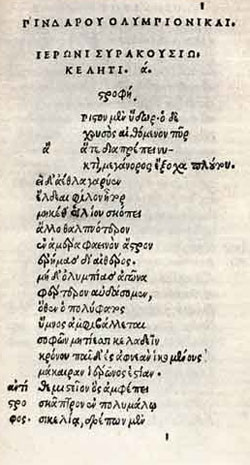 1
ΠΙΝΔΑΡΟΥ ΟΛΥΜΠΙΟΝΙΚΑΙ.
ΙΕΡΩΝΙ ΣΥΡΑΚΟΥΣΙΩ.
ΚΕΛΗΤΙ. ά.
στροφή.
ριστον μὲν ὕδωρ. ὁ δὲ
χρυσὸς αἰθόμενον πῦρ
ἅτε διαπρέπει νυ-
κτὶ, μεγάνορος ἔξοχα πλούτου.
εἰ δ' ἄεθλα γαρύεν
ἔλδεαι φίλον ἦτορ
μηκέθ' ἁλίου σκόπει
ἄλλο θαλπνότερον
ἐν ἁμέρᾳ φαεινὸν ἄστρον
ἐρήμας δι' αἰθέρος.
μηδ' ὀλυμπίας ἀγῶνα
φέρτερον αὐδάσομεν,
ὅθεν ὁ πολύφατος
ὕμνος ἀμφιβάλλεται
σοφῶν μητίεσσι κελαδεῖν
κρόνου παῖδ' ἐς ἀφνεὰν ἱκομένους
μάκαιραν ἱέρωνος ἑστίαν.
ἀντι θεμιστεῖον ὃς ἀμφέπει
στρο σκᾶπτρον ἐν πολυμάλῳ
φος. σικελίᾳ, δρέπων μὲν
1